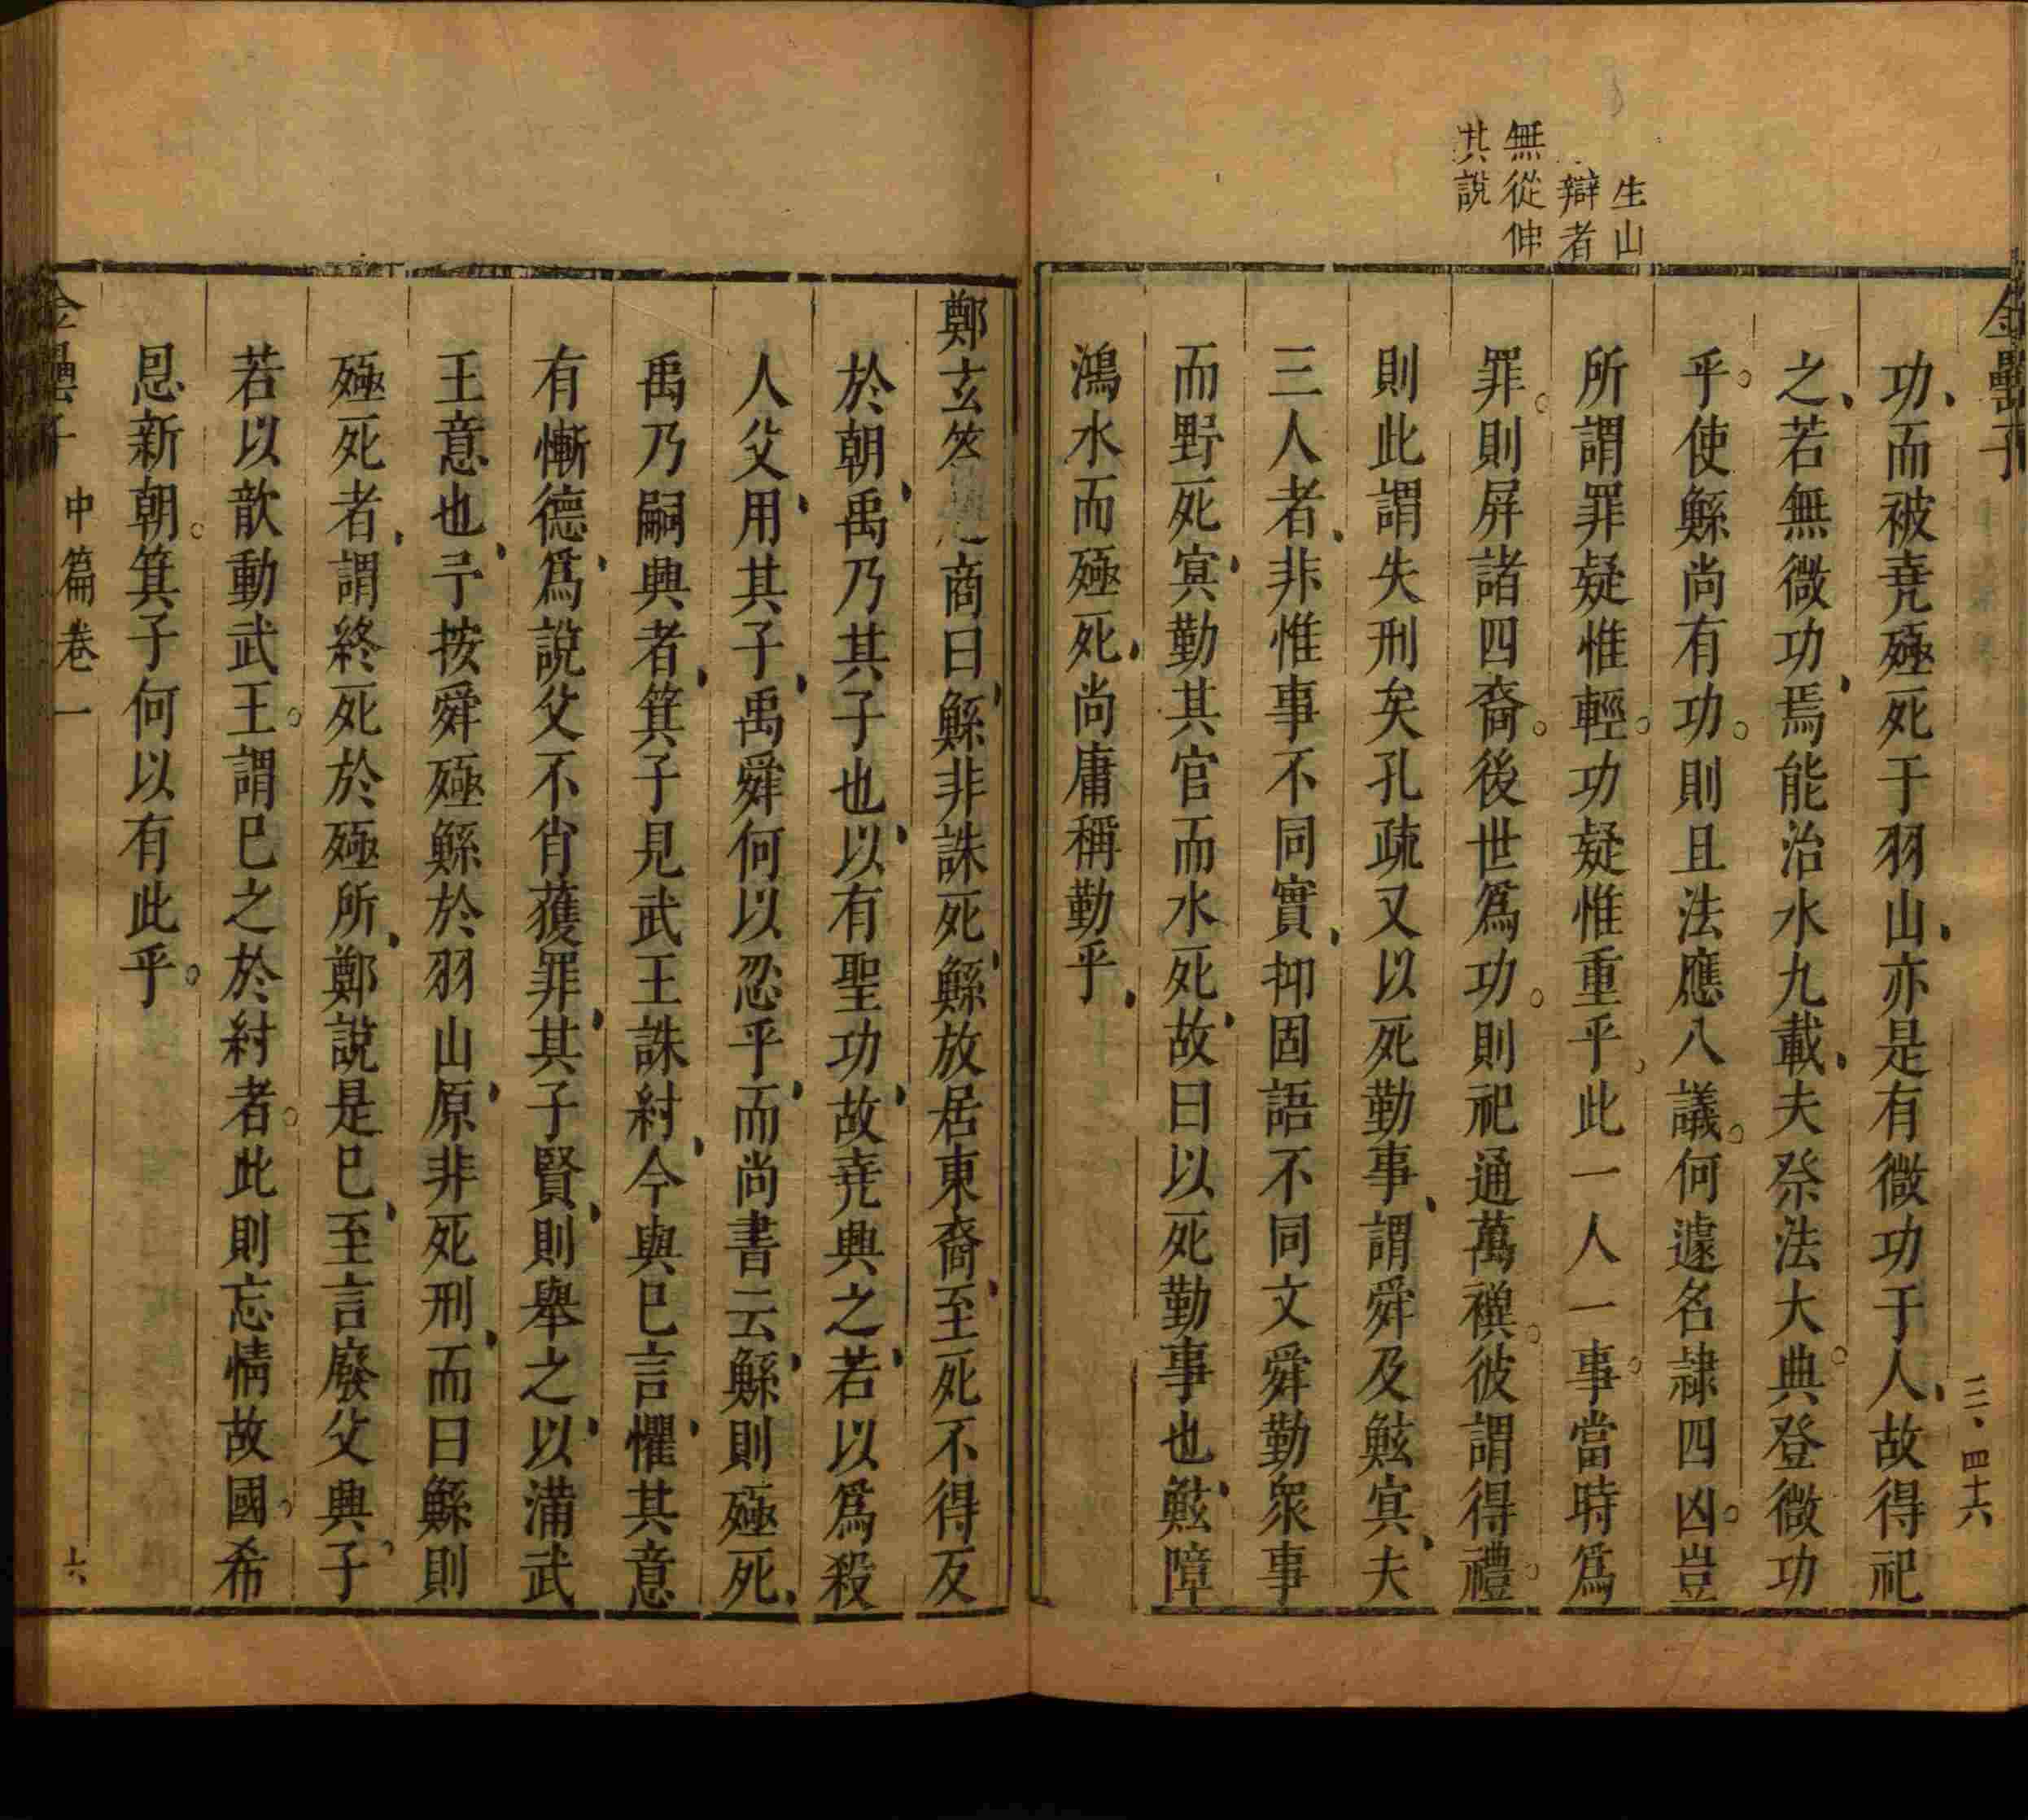 金罍子
三、四十六
生山
辯者
無從伸
其說
功、而被堯殛死于羽山、亦是有微功于人、故得祀
之、若無微功、焉能治水九載、夫祭法大典。登微功
乎。使鯀尚有功。則且法應八議。何遽名隷四凶。豈
所謂罪疑惟輕。功疑惟重乎。此一人一事。當時爲
罪。則屏諸四裔。後世爲功。則祀通萬禩。彼謂得禮。
則此謂失刑矣孔疏又以死勤事、謂舜及鮌㝠、夫
三人者、非惟事不同實、抑固語不同文舜勤衆事
而野死、㝠勤其官而水死、故曰以死勤事也、鮌障
鴻水而殛死、尚庸稱勤乎、
鄭玄答趙商曰、鯀非誅死、鯀放居東裔、至死不得反
於朝、禹乃其子也、以有聖功、故堯興之、若以爲殺
人父、用其子、禹舜何以忍乎、而尚書云、鯀則殛死、
禹乃嗣興者、箕子見武王誅紂、今與巳言、懼其意
有慚德、爲說父不肖獲罪、其子賢、則舉之、以滿武
王意也、予按舜殛鯀於羽山、原非死刑、而曰鯀則
殛死者、謂終死於殛所、鄭說是巳、至言廢父興子、
若以歆動武王。謂巳之於紂者。此則忘情故國。希
恩新朝。箕子何以有此乎。
金罍子
中篇卷一
六